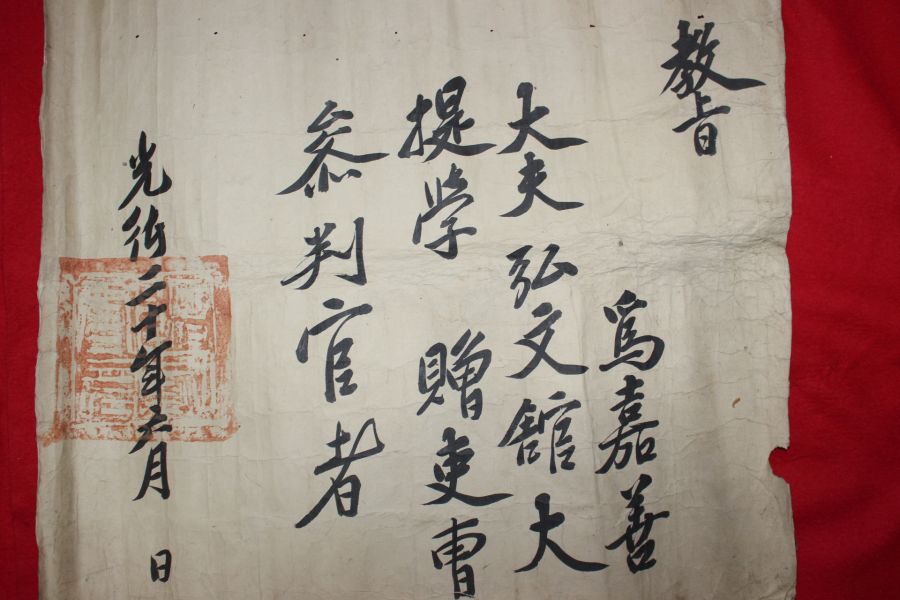 教旨
爲嘉善
大夫弘文舘大
提學 贈吏曺
叅判官者
光緖二十年六月 日